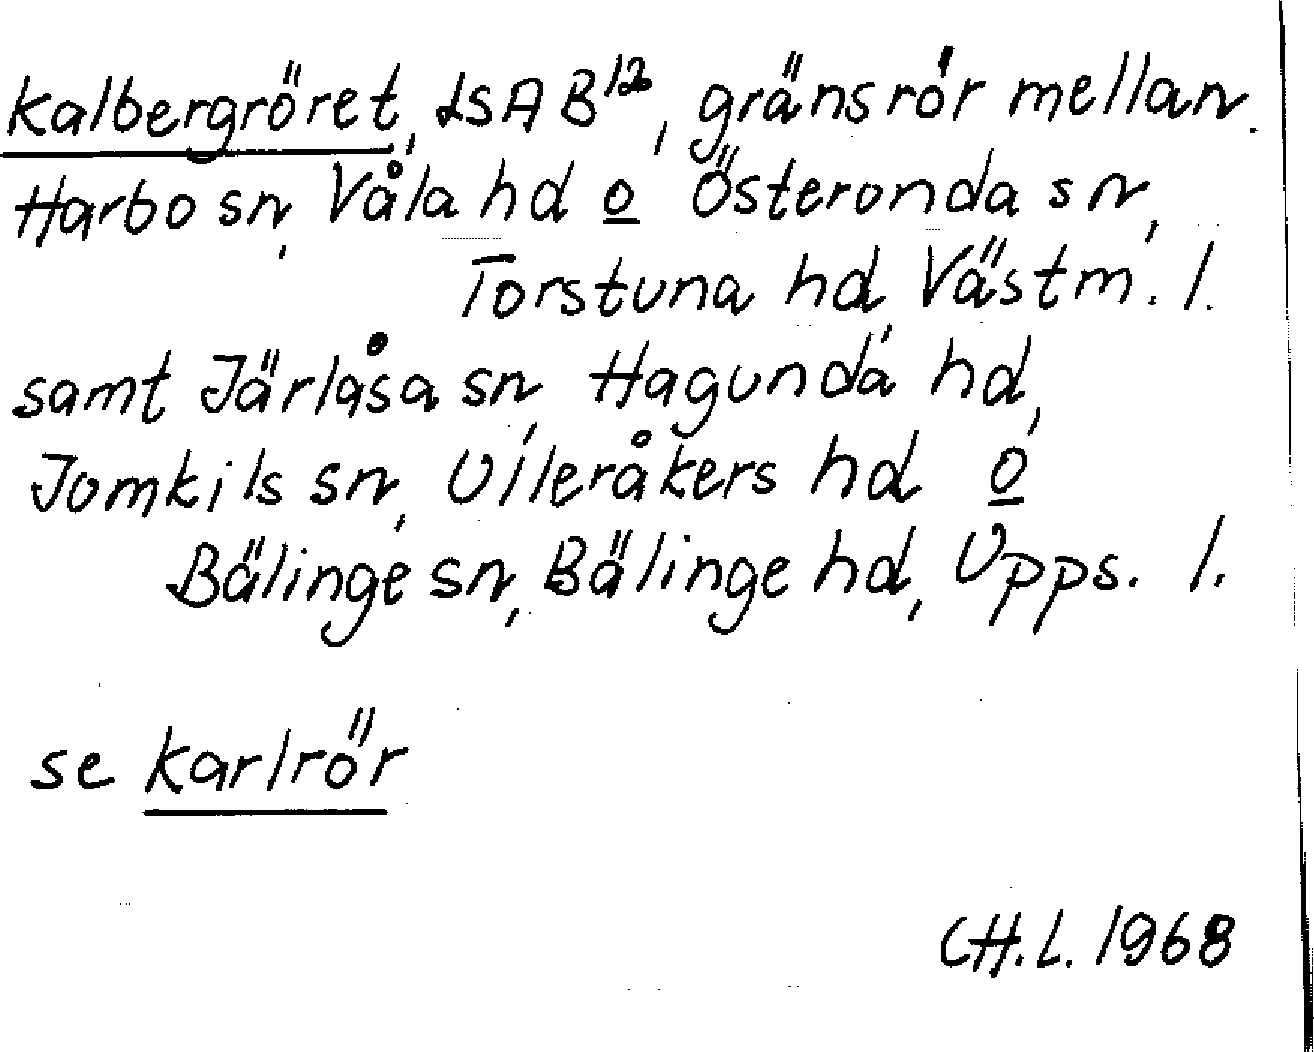 Kalbergröret, LSA B12, gränsrör mellan
Harbo sn, Våla hd o Österonda sn,
Torstuna hd, Västm. l.
samt Järlåsa sn, Hagunda hd,
Jomkils sn, Ulleråkers hd o
Bälinge sn, Bälinge hd, Upps. l.
se Karlrör
CH.L. 1968